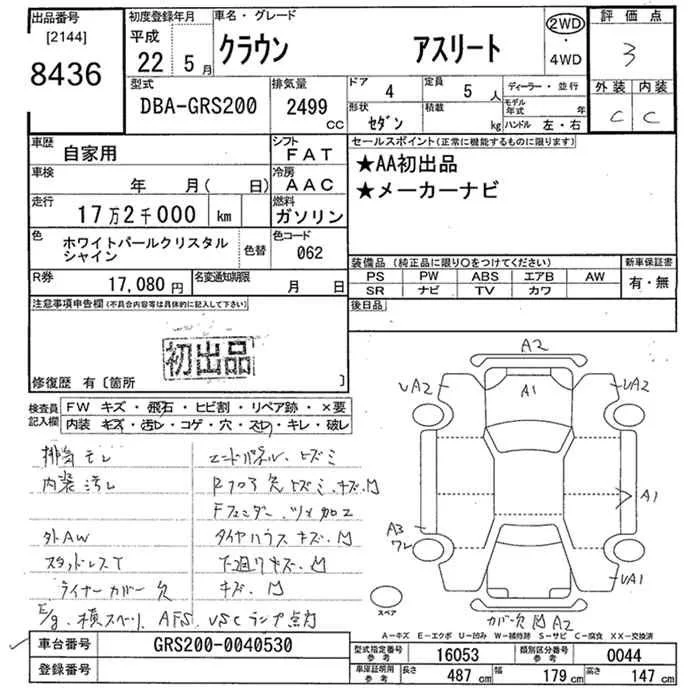 出品番号
[2144]
8436
初度登録年月
平成
22 5月
車名・グレード
クラウン アスリート
2WD
・
4WD
評価点
3
外装 内装
C C
型式
DBA-GRS200
排気量
2499 CC
ドア
4
定員
5 人
形状
セダン
積載
kg
ディーラー・並行
モデル年式 年
ハンドル 左・右
車歴
自家用
シフト
FAT
車検
年 月( 日)
冷房
AAC
走行
17万2千000 km
燃料
ガソリン
色
ホワイトパールクリスタル
シャイン
色替
色コード
062
R券
17,080円
名変通知期限
月 日
セールスポイント(正常に機能するものに限ります)
★AA初出品
★メーカーナビ
装備品(純正品に限り○をつけてください)
PS PW ABS エアB AW
SR ナビ TV カワ
新車保証書
有・無
後日品
注意事項申告欄(不具合内容等は具体的に記入して下さい)
初出品
修復歴 有〔箇所 〕
検査員
記入欄
FW キズ・飛石・ヒビ割・リペア跡・×要
内装 キズ・汚レ・コゲ・穴・スレ・キレ・破レ
排気モレ
内装汚レ
外AW
スタッドレスT
ライナーカバー欠
E/g、横スベリ、AFS、VSCランプ点灯
エンドパネル、ヒズミ
Fフェンダー、ツメ加工
タイヤハウスキズ、凹
下廻りキズ、凹
キズ、凹
A2
UA2
A1
UA2
A1
A3
ワレ
UA1
スペア
カバー欠 凹 A2
A-キズ E-エクボ U-凹み W-補修跡 S-サビ C-腐食 XX-交換済
車台番号
GRS200-0040530
登録番号
型式指定番号
参考
16053
類別区分番号
参考
0044
車庫証明用
参考
長さ 487 cm 幅 179 cm 高さ 147 cm